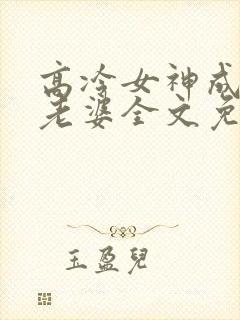 高冷女神成
老婆全文免
玉盈兒